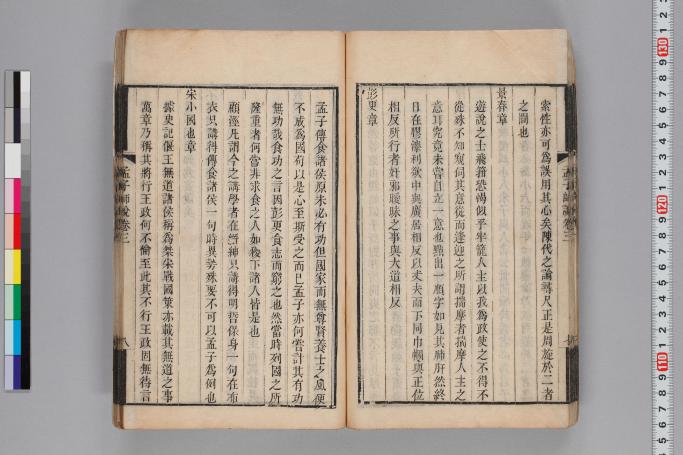 索性亦可為誤用其心矣陳代之論尋尺正是周旋於二者
之間也
景春章
遊說之士飛箝恐愒似乎牢籠人主以我為政使之不得不
從殊不知窺伺其意從而逢迎之所謂揣摩者揣摩人主之
意耳究竟未嘗自立一意也點出一順字如見其肺肝然終
日在膠漆利欲中與廣居相反以丈夫而下同巾幗與正位
相反所行者奸邪曖昧之事與大道相反
彭更章
孟子傳食諸侯原未必有功但國家而無尊賢養士之風便
不成為國苟以是心至斯受之而已孟子亦何嘗計其有功
無功哉食功之言因彭更食志而窮之也然當時列國之所
隆重者何嘗非求食之人如稷下諸人皆是也
顧涇凡謂今之講學者在縉紳只講得明哲保身一句在布
衣只講得傳食諸侯一句時異勢殊要不可以孟子為例也
宋小國也章
據史記偃王無道諸侯稱為桀宋戰國策亦載其無道之事
萬章乃稱其將行王政何不倫至此其不行王政固無待言
孟子師說卷三
八